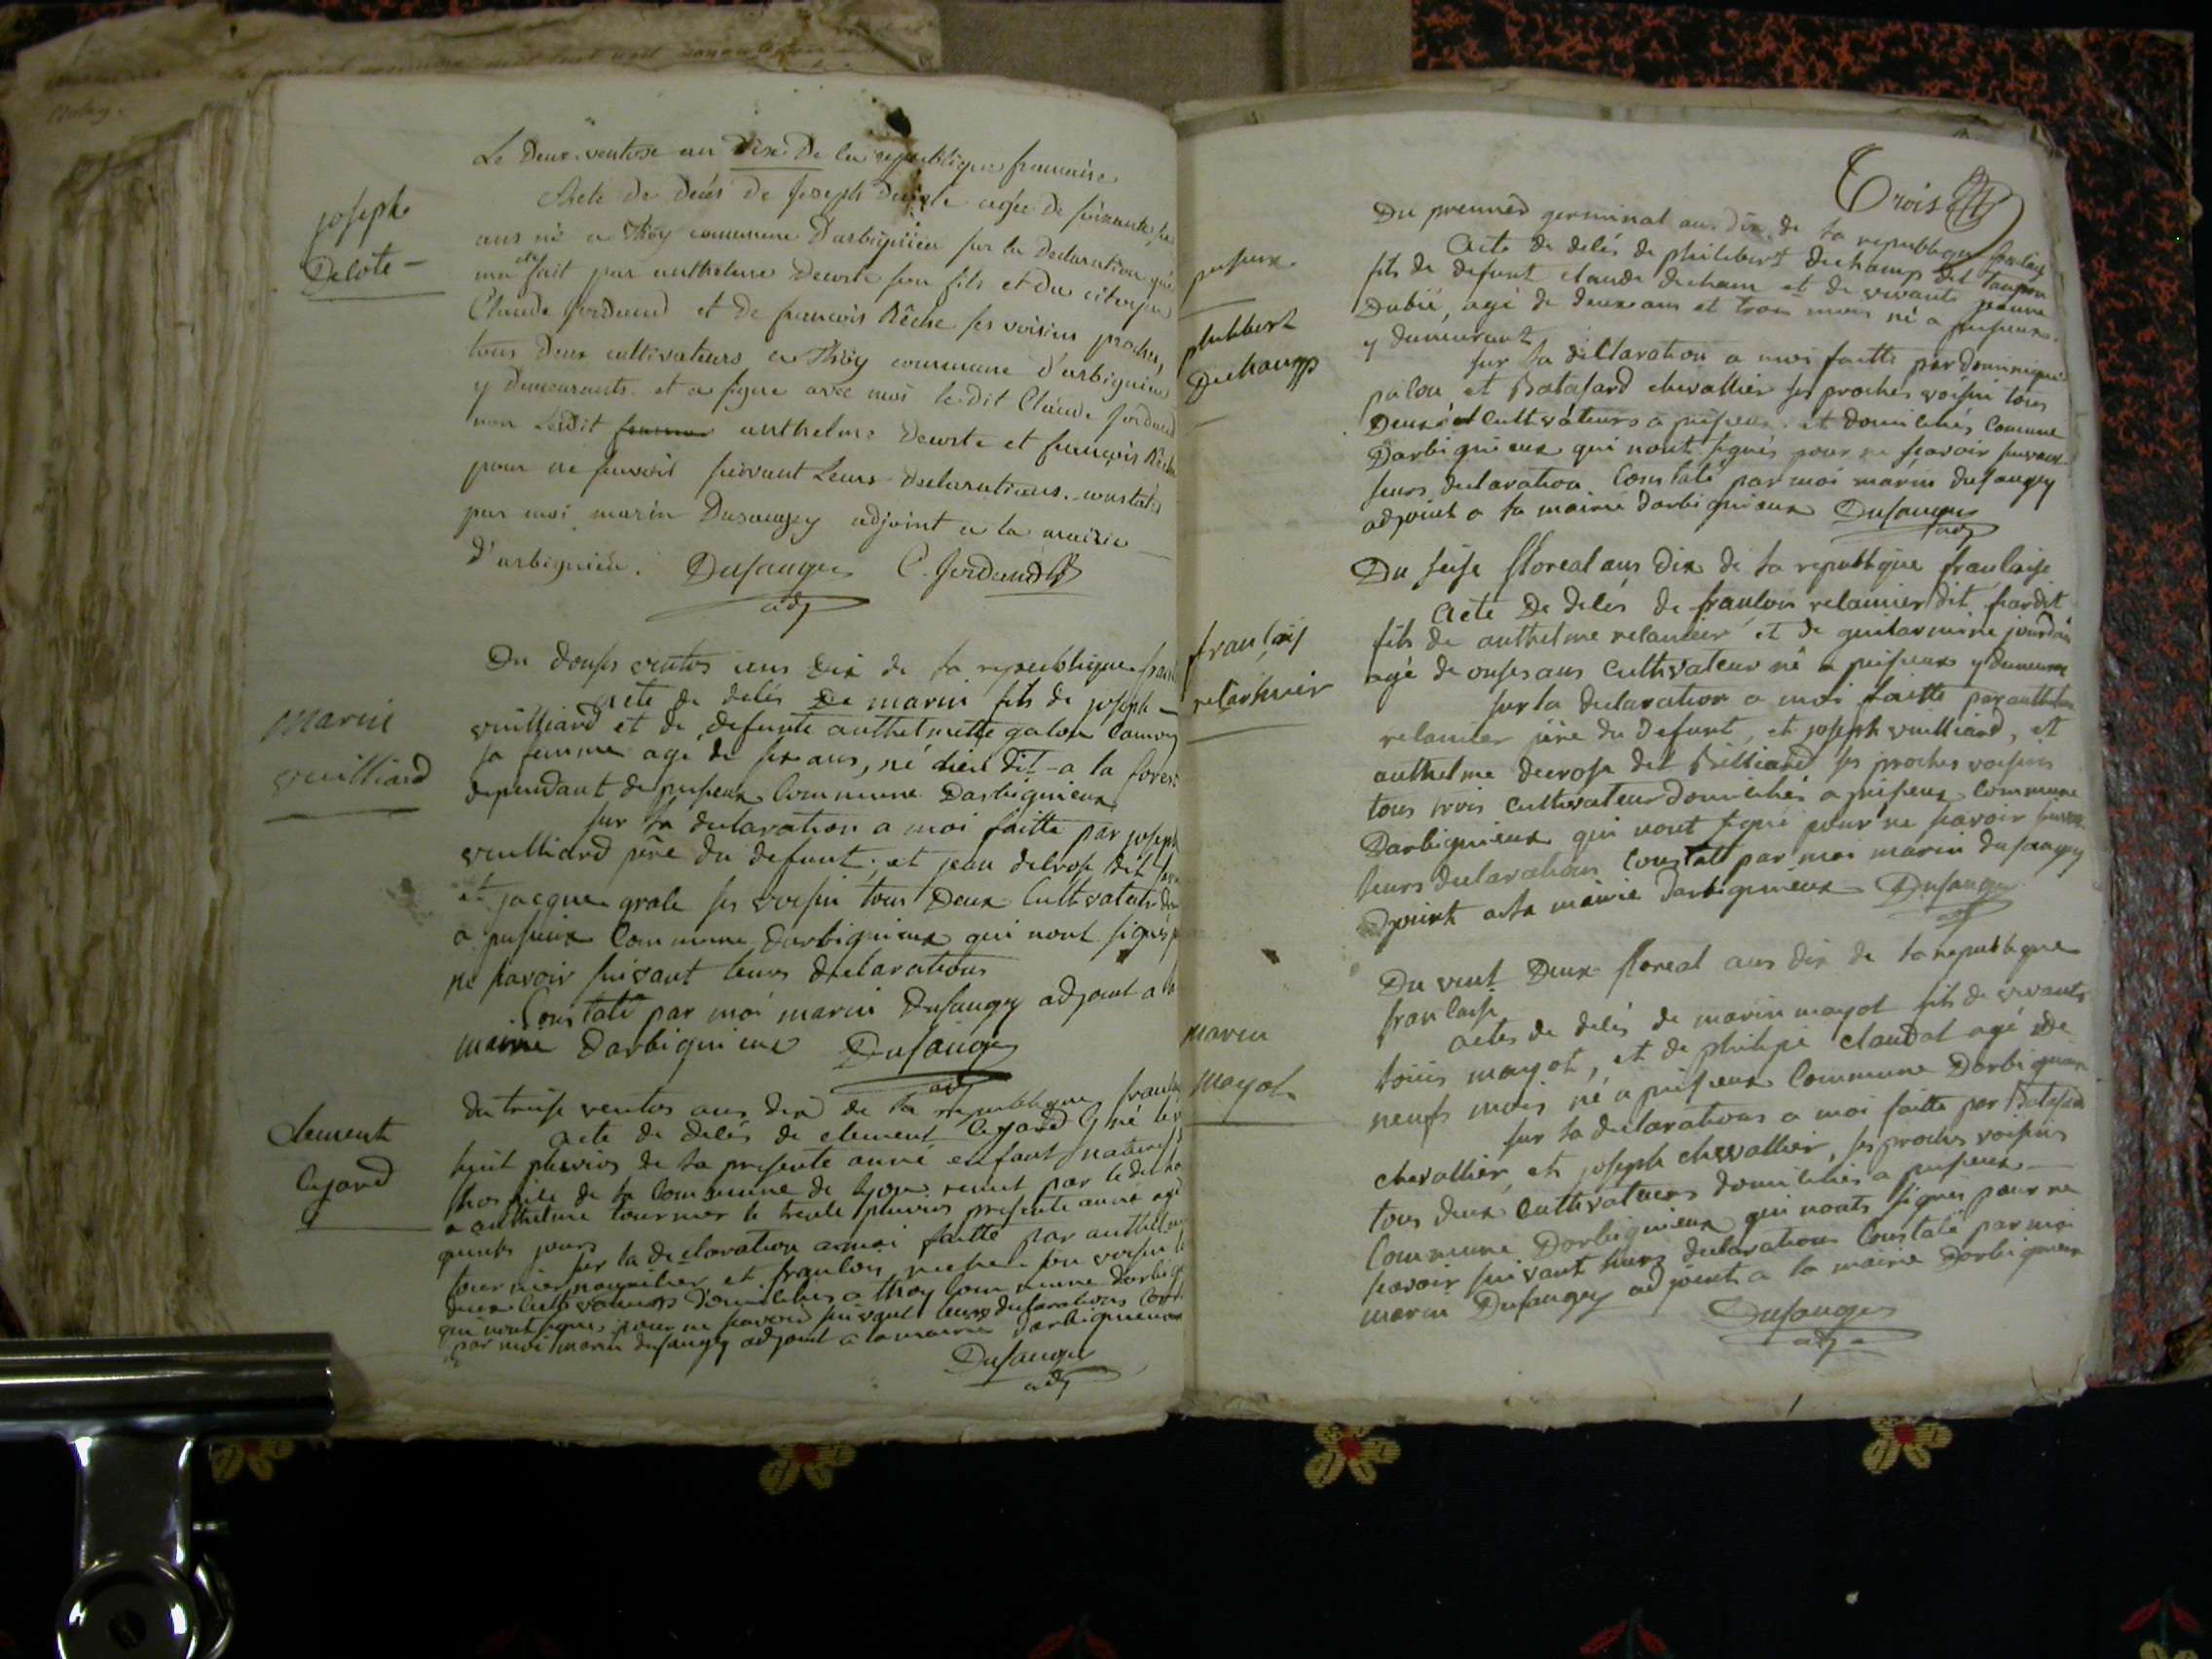 Le Deux ventose an Dix De la republique francaise
joseph
Decote
Acte de decés de Joseph Decote agée de soixante
ans né a Thöy commune D'arbignieu sur la Declaration qu'
ma été fait par anthelme Decoste son fils et du citoyen
Claude Jordand et de francois Rêche ses voisins proches,
tous Deux cultivateurs a Thöy commune d'arbignieu
y Demeurants et a signé avec moi le dit Claude Jordand
non Ledit anthelme Decoste et françois Rêche
pour ne savoir suivant Leurs Declarations. constatés
par moi marin Dusaugey adjoint a la mairie
D'arbignieu. Dusaugey C. Jordand
adj
marin
vuilliard
Du douses ventos ans Dix de la republique
acte de delés De marin fils de joseph
vuilliard et de defunte anthelmette galon
sa femme agé de six ans, né lieu dit a la forest
dependant de pusieux Commune Darbignieux
sur la declaration a moi faitte par joseph
vuilliard père du defunt, et jean delrose dit
et jacque grole ses voisin tous Deux Cultivateurs
a pusieux Commune Darbignieux qui nont signés
ne savoir suivant leurs declarations
Constaté par moi marin Dusaugey adjoint a la
mairie Darbignieux Dusaugey
adj
Clement
lajard
du treise ventos ans dix de la republique
acte de delés de clement lajard né le
huit pluvios de la presente anné enfant naturels
hospice de la Commune de lyon remit par
a anthelme tournier le trente pluvios presente anné agé
quinse jours
sur la declaration a moi faitte par anthelme
tournier nourricier et franlois son voisin
deux Cultivateurs Domiciliés a thoy Commune Darbig
qui nont signés pour ne savoir suivant leurs declarations
par moi marin dusaugey adjoint a la mairie Darbignieux
Dusaugey
adj
Trois
pusieux
philibert
Dechamp
Du premier germinal ans Dix de la republique
Acte de delés de philibert dechamp dit
fils de defunt claude decham et de vivante jeanne
Dubié, agé de deux ans et trois mois né a pusieux
y demeurant
sur la declaration a moi faitte par dominique
palou et Batasard chevallier ses proches voisin tous
Deux Cultivateurs a pusieux et domiciliés Comune
Darbignieux qui nont signés pour ne savoir suivant
leurs declaration Constaté par moi marin dusaugey
adjoint a la mairie Darbignieux Dusaugey
adj
franlois
relanier
Du seise floreal ans Dix de la republique franlaise
Acte De delés de franlois relanier dit
fils de anthelme relanier et de guilarmine jourdan
agé de onses ans Cultivateur né a pusieux y demeurant
sur la declaration a moi faitte par anthelme
relanier père du defunt, et joseph vuilliard, et
anthelme decrose dit Billiard ses proches voisins
tous trois Cultivateur domiciliés a pusieux Commune
Darbignieux qui nont signé pour ne savoir suivant
leurs declarations Constaté par moi marin dusaugey
adjoint a la mairie Darbignieux Dusaugey
adj
marin
mayot
Du vent Deux floreal ans dix de la republique
franlaise
actes de delés de marin mayot fils de vivants
louis mayot, et de philipe claudat agé de
neufs mois né a pusieux Commune Darbignieux
sur la declarations a moi faitte par Batasard
chevallier et joseph chevallier, ses proches voisins
tous deux Cultivateurs domiciliés a pusieux
Commune Darbignieux qui nonts signés pour ne
savoir suivant leurs declarations Constaté par moi
marin Dusaugey adjoint a la mairie Darbignieux
Dusaugey
adj